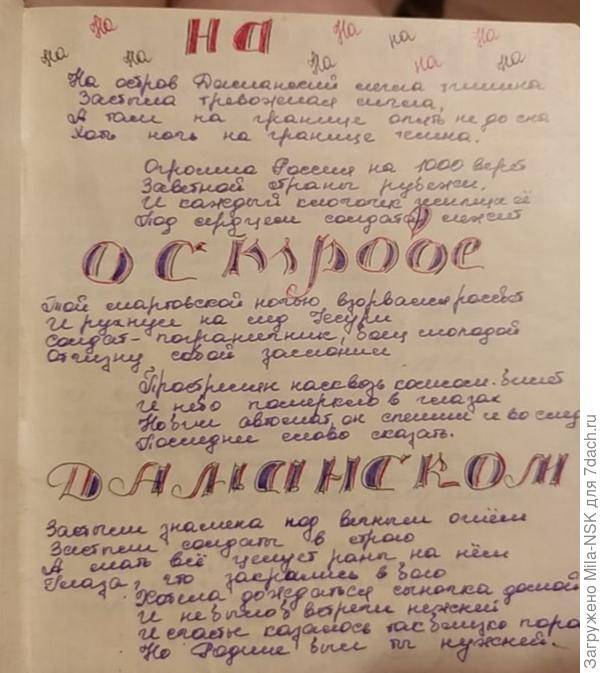 На На На На на На
На На На на На
На остров Даманский легла тишина
Застыла тревожная мгла,
А там на границе опять не до сна
Хоть ночь на границе темна.
Огромна Россия на 1000 верст
Заветной страны рубежи.
И каждый клочочек земли её
Под сердцем солдата лежит
острове
Той мартовской ночью взорвался рассвет
И рухнул на лед Уссури
солдат-пограничник, боец молодой
Отчизну собой заслонил
Прострелян насквозь комсом. билет
И небо померкло в глазах
Но был автомат, он спешил и во след
Последнее слово сказать.
Даманском
Застыли знамена под вечным огнём
Застыли солдаты в строю
А мать всё целует раны на нём
Глаза, что закрались в бою
Хотела дождаться сыночка домой
И не было встречи нежней
И счастье казалось так близко пора
Но Родине был ты нужней.
Загружено Mila-NSK для 7dach.ru